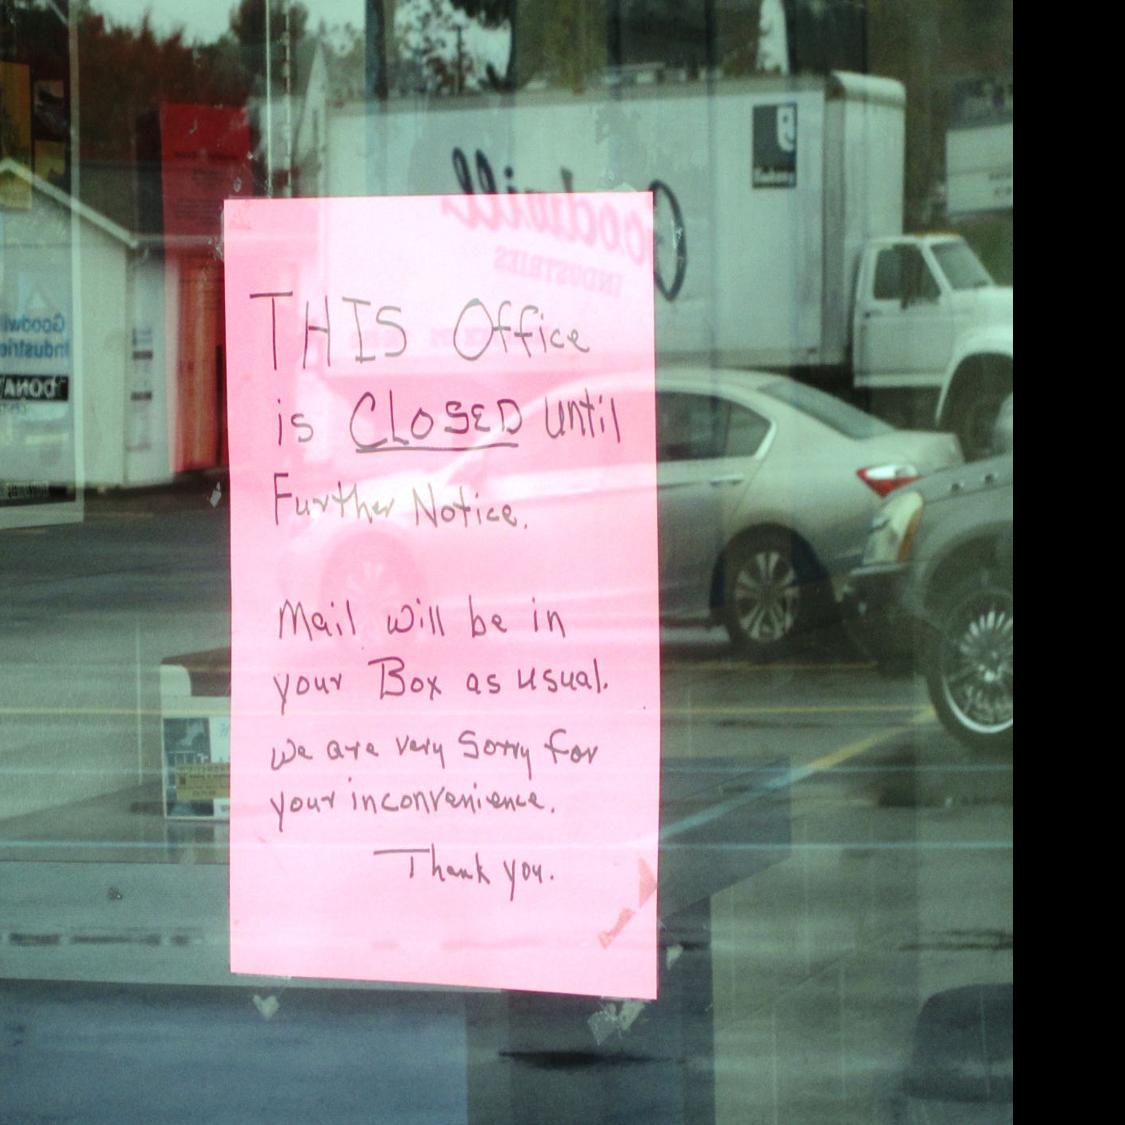 THIS Office
is CLOSED Until
Further Notice.
Mail will be in
your Box as usual.
We are very Sorry for
your inconvenience.
Thank you.
Goodwill
INDUSTRIES
Goodwill
Industries
DONA